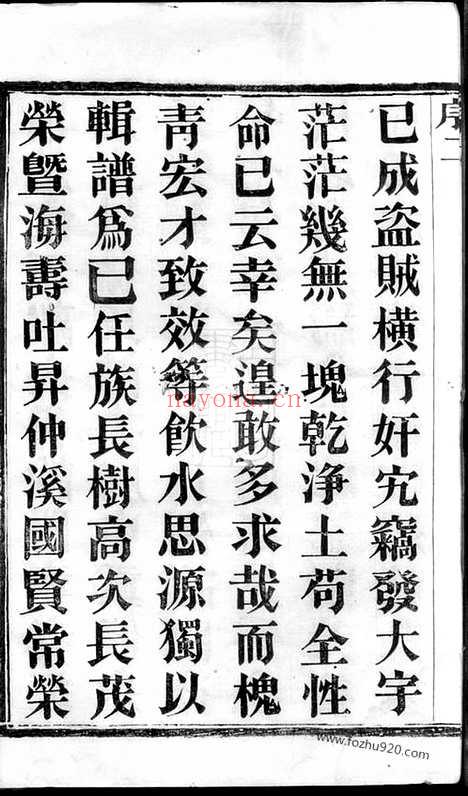 序二
已成盜賊橫行奸宄竊發大宇
茫茫幾無一塊乾净土苟全性
命已云幸矣遑敢多求哉而槐
青宏才致效等飲水思源獨以
輯譜爲己任族長樹高次長茂
榮暨海壽吐昇仲溪國賢常榮
nayona.cn
www.fozhu920.com